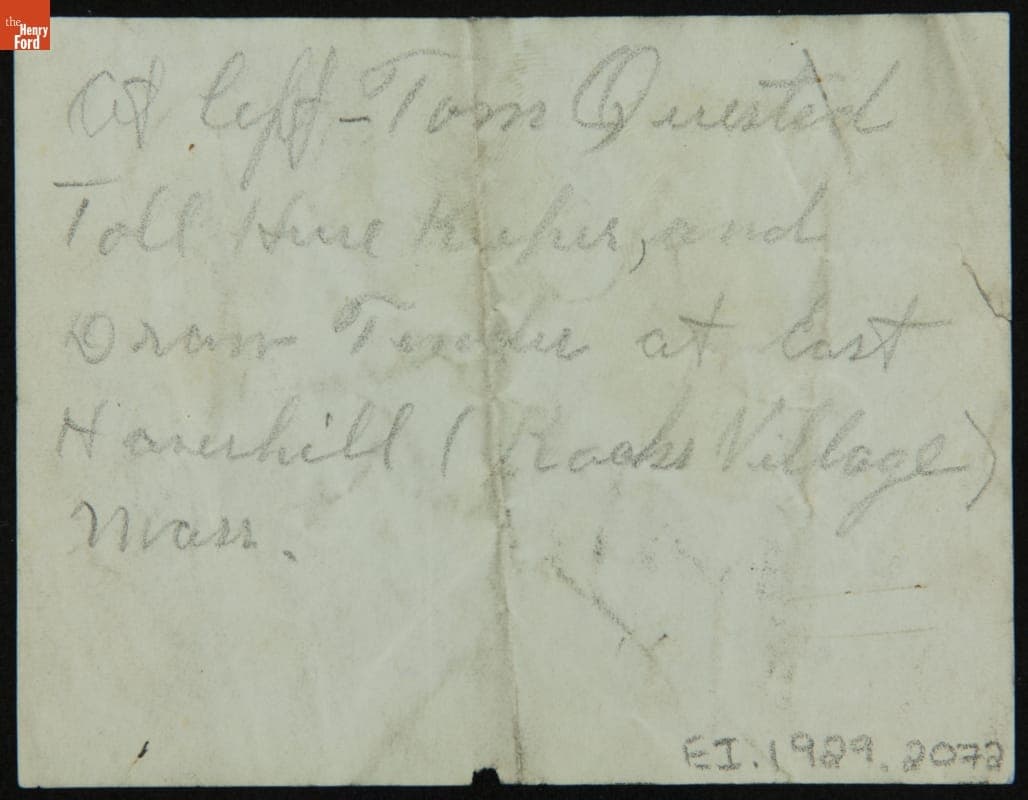 the
Henry
Ford
At left - Tom Quested
Toll House Keeper, and
Draw Tender at East
Haverhill (Rocks Village)
Mass.
EI.1929.2072